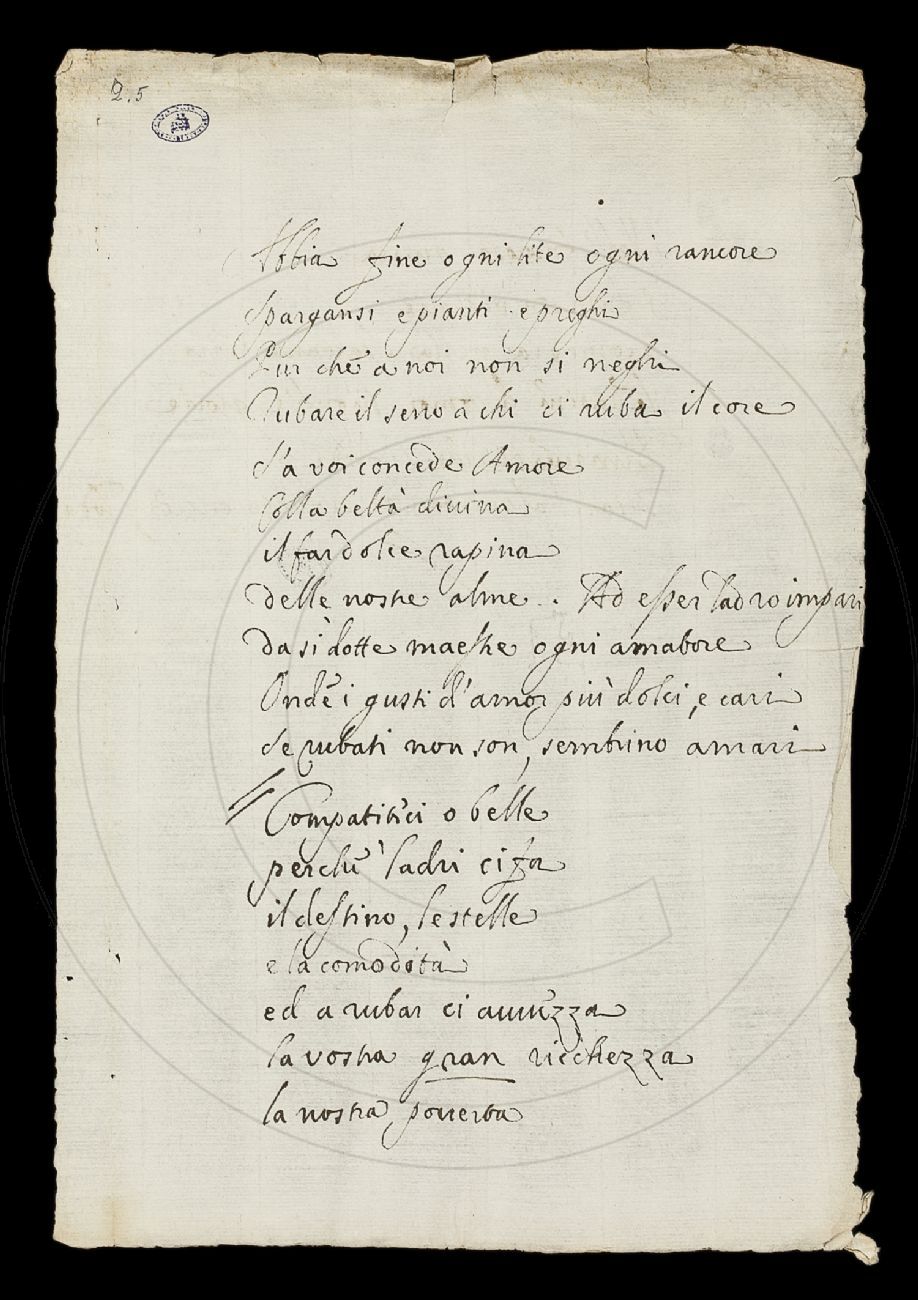 2.5
Abbia fine ogni lite ogni rancore
spargansi e pianti e preghi
Pur che a noi non si neghi
Rubare il seno a chi ci ruba il core
S'a voi concede Amore
Colla beltà diuina
il far dolce rapina
delle nostre alme. Ad esser ladro impari
da sì dotte maestre ogni amatore
Onde i gusti d'amor più dolci, e cari
se rubati non son, sembrino amari
Compatitici o belle
perche ladri ci fa
il destino, le stelle
e la comodità
ed a rubar ci auuezza
la vostra gran ricchezza
la nostra pouertà